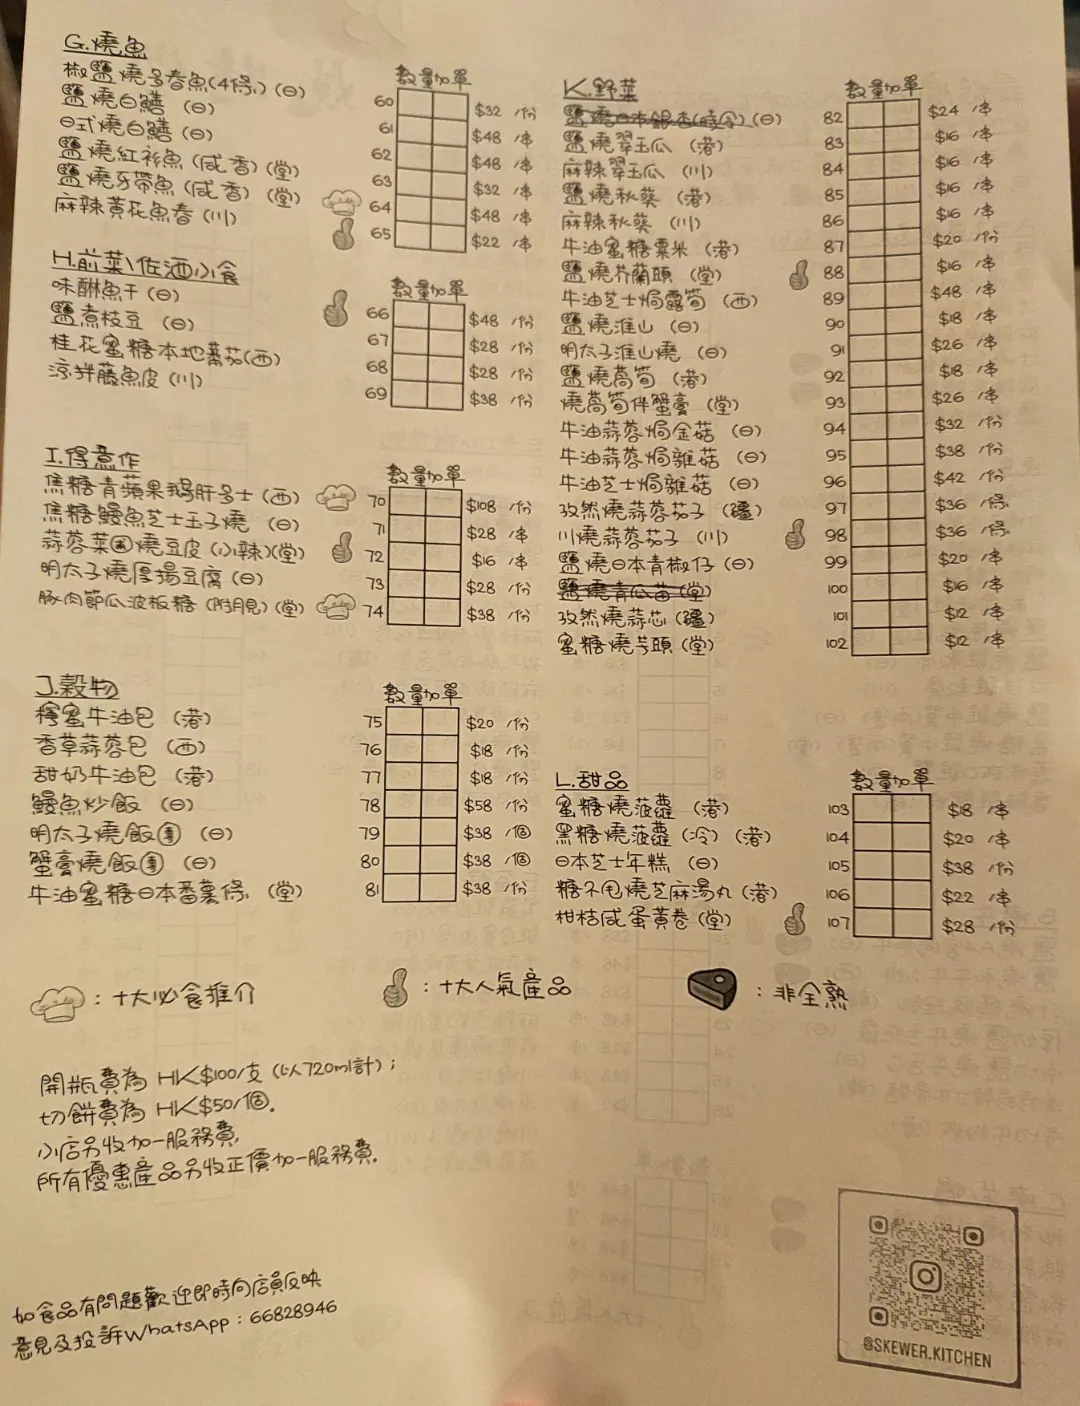 G.燒魚
數量加單
椒鹽燒多春魚(4條)(日) 60 $32 /份
鹽燒白鱔 (日) 61 $48 /串
日式燒白鱔 (日) 62 $48 /串
鹽燒紅衫魚 (咸香)(堂) 63 $32 /串
鹽燒牙帶魚 (咸香) (堂) 64 $48 /串
麻辣黃花魚春 (川) 65 $22 /串
H.前菜\佐酒小食
數量加單
味醂魚干 (日) 66 $48 /份
鹽煮枝豆 (日) 67 $28 /份
桂花蜜糖本地蕃茄(西) 68 $28 /份
涼拌藤魚皮 (川) 69 $38 /份
I.得意作
數量加單
焦糖青蘋果鵝肝多士 (西) 70 $108 /份
焦糖鰻魚芝士玉子燒 (日) 71 $28 /串
蒜蓉菜圃燒豆皮 (小辣)(堂) 72 $16 /串
明太子燒厚揚豆腐 (日) 73 $28 /份
豚肉節瓜波板糖 (附月見) (堂) 74 $38 /份
J.穀物
數量加單
檸蜜牛油包 (港) 75 $20 /份
香草蒜蓉包 (西) 76 $18 /份
甜奶牛油包 (港) 77 $18 /份
鰻魚炒飯 (日) 78 $58 /份
明太子燒飯團 (日) 79 $38 /個
蟹膏燒飯團 (日) 80 $38 /個
牛油蜜糖日本番薯條 (堂) 81 $38 /份
K.野菜
數量加單
鹽燒日本銀杏(時令)(日) 82 $24 /串
鹽燒翠玉瓜 (港) 83 $16 /串
麻辣翠玉瓜 (川) 84 $16 /串
鹽燒秋葵 (港) 85 $16 /串
麻辣秋葵 (川) 86 $16 /串
牛油蜜糖粟米 (港) 87 $20 /份
鹽燒芥蘭頭 (堂) 88 $16 /串
牛油芝士焗露筍 (西) 89 $48 /串
鹽燒淮山 (日) 90 $18 /串
明太子淮山燒 (日) 91 $26 /串
鹽燒萵筍 (港) 92 $18 /串
燒萵筍伴蟹膏 (堂) 93 $26 /串
牛油蒜蓉焗金菇 (日) 94 $32 /份
牛油蒜蓉焗雜菇 (日) 95 $38 /份
牛油芝士焗雜菇 (日) 96 $42 /份
孜然燒蒜蓉茄子 (疆) 97 $36 /條
川燒蒜蓉茄子 (川) 98 $36 /條
鹽燒日本青椒仔 (日) 99 $20 /串
鹽燒青瓜苗 (堂) 100 $16 /串
孜然燒蒜芯 (疆) 101 $12 /串
蜜糖燒芋頭 (堂) 102 $12 /串
L.甜品
數量加單
蜜糖燒菠蘿 (港) 103 $18 /串
黑糖燒菠蘿 (冷) (港) 104 $20 /串
日本芝士年糕 (日) 105 $38 /份
糖不甩燒芝麻湯丸 (港) 106 $22 /串
柑桔咸蛋黃卷 (堂) 107 $28 /份
: 十大必食推介
: 十大人氣產品
: 非全熟
開瓶費為 HK$100/支 (以720ml計) ;
切餅費為 HK$50/個。
小店另收加一服務費,
所有優惠產品另收正價加一服務費.
如食品有問題歡迎即時向店員反映
意見及投訴WhatsApp : 66828946
@SKEWER.KITCHEN